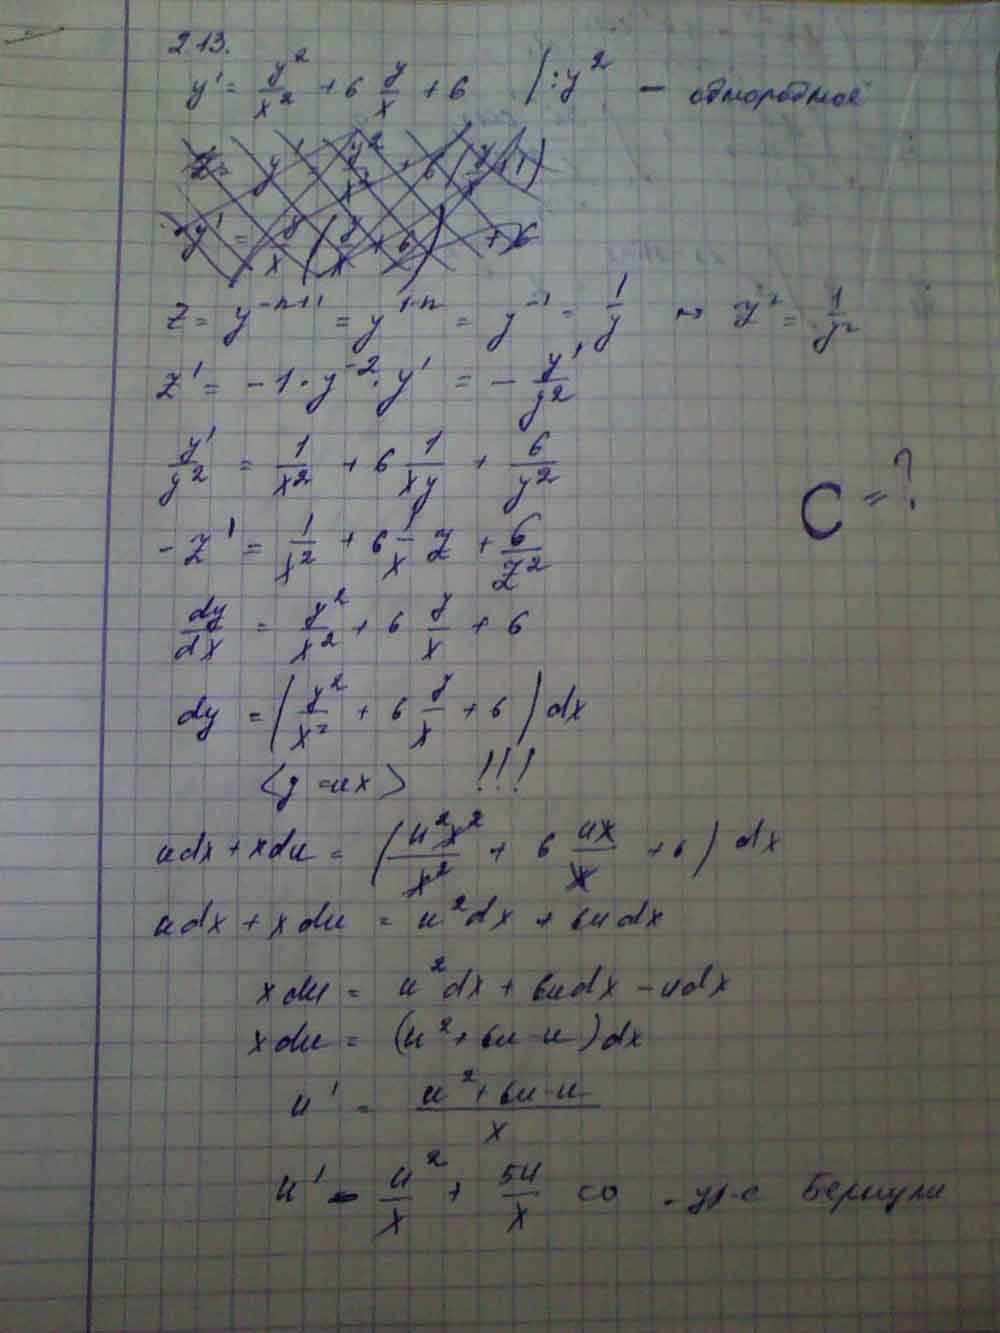 213.
y' = y²/x² + 6 y/x + 6 | : y² — однородное
z = y^(-n+1) = y^(1-n) = y^(-1) = 1/y ⇒ z² = 1/y²
z' = -1 · y^(-2) · y' = - y'/y²
y'/y² = 1/x² + 6 1/(xy) + 6/y²
C = ?
-z' = 1/x² + 6 1/x z + 6/z²
dy/dx = y²/x² + 6 y/x + 6
dy = (y²/x² + 6 y/x + 6) dx
<y = ux> !!!
udx + xdu = (u²x²/x² + 6 ux/x + 6) dx
udx + xdu = u²dx + 6udx
xdu = u²dx + 6udx - udx
xdu = (u² + 6u - u) dx
u' = (u² + 6u - u)/x
u' = u²/x + 5u/x - ур-е Бернули